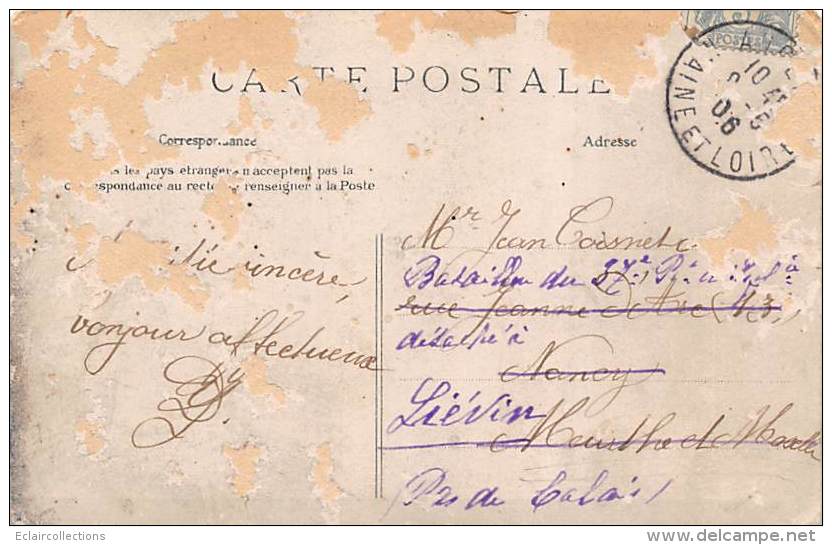 POSTES
10
06
AINE ET LOIRE
CARTE POSTALE
Correspondance
Adresse
les pays etrangers n'acceptent pas la
correspondance au recto renseigner à la Poste
Mr Jean
Bataillon du
rue Jeanne d'Arc
détaché à
Nancy
Liévin
Meurthe et Moselle
Pas de Calais
sincère,
bonjour affectueux
Eclaircollections
www.delcampe.net